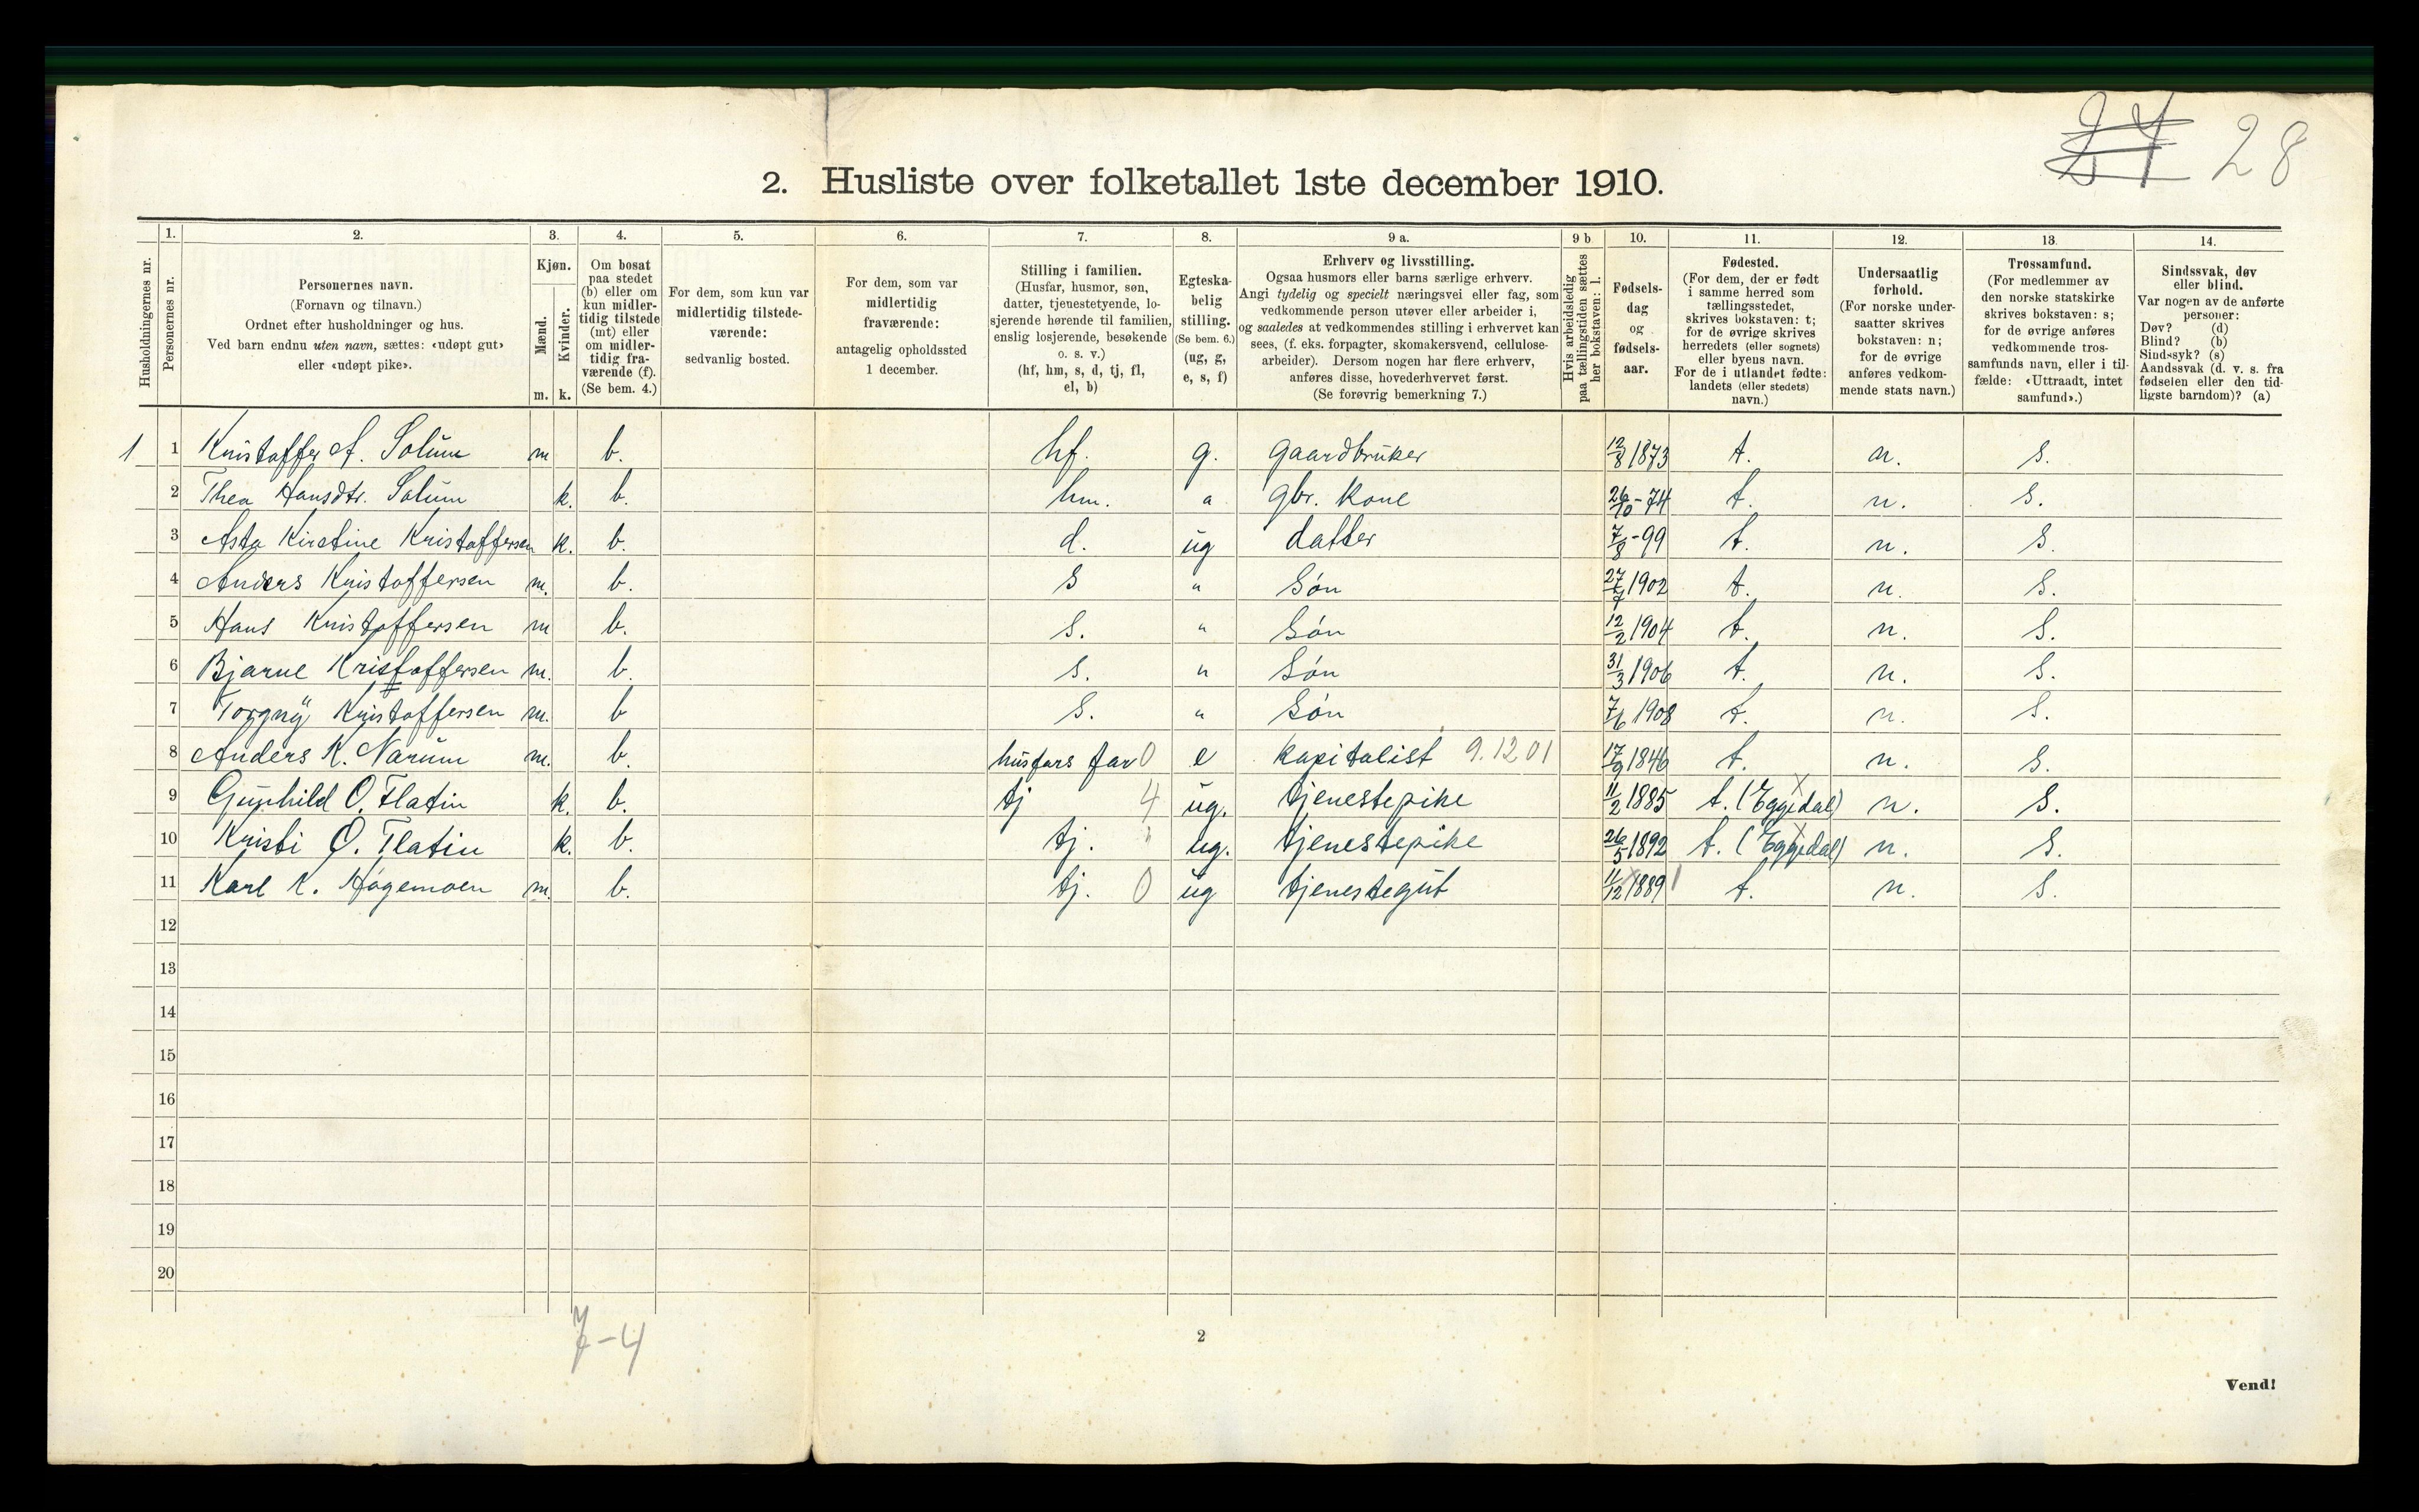 27 28
2. Husliste over folketallet 1ste december 1910.
Husholdningernes nr.
1. Personernes nr.
2. Personernes navn.
(Fornavn og tilnavn.)
Ordnet efter husholdninger og hus.
Ved barn endnu uten navn, sættes: «udøpt gut»
eller «udøpt pike».
3. Kjøn.
Mænd. m.
Kvinder. k.
4. Om bosat
paa stedet
(b) eller om
kun midler-
tidig tilstede
(mt) eller
om midler-
tidig fra-
værende (f).
(Se bem. 4.)
5. For dem, som kun var
midlertidig tilstede-
værende:
sedvanlig bosted.
6. For dem, som var
midlertidig
fraværende:
antagelig opholdssted
1 december.
7. Stilling i familien.
(Husfar, husmor, søn,
datter, tjenestetyende, lo-
sjerende hørende til familien,
enslig losjerende, besøkende
o. s. v.)
(hf, hm, s, d, tj, fl,
el, b)
8. Egteska-
belig
stilling.
(Se bem. 6.)
(ug, g,
e, s, f)
9 a. Erhverv og livsstilling.
Ogsaa husmors eller barns særlige erhverv.
Angi tydelig og specielt næringsvei eller fag, som
vedkommende person utøver eller arbeider i,
og saaledes at vedkommendes stilling i erhvervet kan
sees, (f. eks. forpagter, skomakersvend, cellulose-
arbeider). Dersom nogen har flere erhverv,
anføres disse, hovederhvervet først.
(Se forøvrig bemerkning 7.)
9 b. Hvis arbeidsledig
paa tællingstiden sættes
her bokstaven: l.
10. Fødsels-
dag
og
fødsels-
aar.
11. Fødested.
(For dem, der er født
i samme herred som
tællingsstedet,
skrives bokstaven: t;
for de øvrige skrives
herredets (eller sognets)
eller byens navn.
For de i utlandet fødte:
landets (eller stedets)
navn.)
12. Undersaatlig
forhold.
(For norske under-
saatter skrives
bokstaven: n;
for de øvrige
anføres vedkom-
mende stats navn.)
13. Trossamfund.
(For medlemmer av
den norske statskirke
skrives bokstaven: s;
for de øvrige anføres
vedkommende tros-
samfunds navn, eller i til-
fælde: «Uttraadt, intet
samfund».)
14. Sindssvak, døv
eller blind.
Var nogen av de anførte
personer:
Døv? (d)
Blind? (b)
Sindssyk? (s)
Aandssvak (d. v. s. fra
fødselen eller den tid-
ligste barndom)? (a)
1 1 Kristoffer A. Solum m b. hf. g. gaardbruker 12/8 1873 t. n. s.
2 Thea Hansdtr. Solum k. b. hm. " gbr. kone 26/10 - 74 t. n. s.
3 Asta Kirstine Kristoffersen k. b. d. ug datter 7/8 - 99 t. n. s.
4 Anders Kristoffersen m. b. s " Søn 27/7 1902 t. n. s.
5 Hans Kristoffersen m b. s. " Søn 12/2 1904 t. n. s.
6 Bjarne Kristoffersen m. b. s. " Søn 31/3 1906 t. n. s.
7 Torgny Kristoffersen m. b s. " Søn 7/6 1908 t. n. s.
8 Anders K. Narum m. b. husfars far 0 e kapitalist 9.12 01 17/9 1846 t. n. s.
9 Gunhild O. Flatin k. b. tj 4 ug. tjenestepike 11/2 1885 t. (Eggedal) n. s.
10 Kristi O. Flatin k. b. tj. " ug. tjenestepike 26/5 1892 t. (Eggedal) n. s.
11 Karl K. Høgemoen m. b. tj. 0 ug tjenestegut 11/12 1889 t. n. s.
12
13
14
15
16
17
18
19
20
7-4
2
Vend!